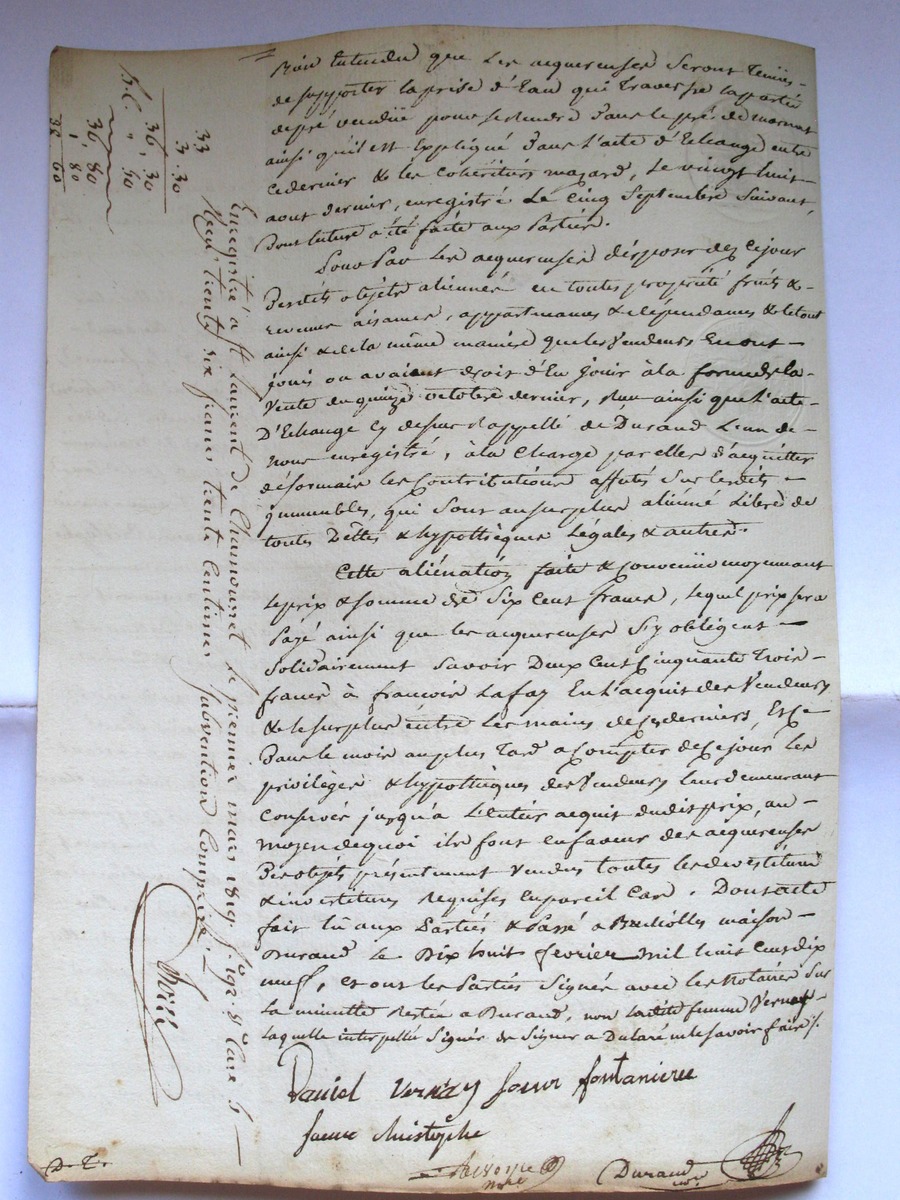 Bien Entendu que Les acquereuses Seront Tenües
de supporter la prise d'Eau qui Traverse la partie
de pré vendüe pour se rendre dans le pré de
ainsi qu'il est Expliqué dans l'acte d'Echange entre
ce dernier & les cohéritiers mazard, Le vingt huit
aout dernier, enregistré Le cinq Septembre Suivant,
Dont lecture a été faite aux Parties.
Pour Par Les acquereuses disposer dez ce jour
Desdits objets aliennés en toutes propriété fruits &
revenus aisances, appartenances & dépendances & letout
ainsi & de la même manière que les Vendeurs En ont
jouis ou avaient droit d'En jouir à la forme de la
Vente du quinze octobre dernier, & ainsi que L'acte
D'Echange Cy dessus Rappellé de Durand L'un de
nous enregistré, à la Charge par elles d'acquitter
désormais les Contributions affectés Sur lesdits
immeubles, qui Sont au surplus aliéné Libre de
toutes Dettes & hypothèques Légales & autres.
Cette aliénation faite & Convenüe moyennant
Le prix & somme de Six Cent francs, lequel prix sera
Payé ainsi que les acquereuses S'y obligent
Solidairement Savoir Deux Cent Cinquante Trois
francs à francois Lafay En L'acquit des Vendeurs
& le surplus entre Les mains de Ces derniers, Et Ce
Dans le mois au plus Tard a compter de Ce jour Les
privilèges & hypothèques des Vendeurs Leur demeurant
Conservés jusqu'à L'entier acquit dudit prix, au
moyen de quoi ils font en faveur des acquereuses
Des objets présentement Vendus toutes les devestitures
& investitures Requises En pareil Cas. Dont acte
fait lû aux Parties & Passé a maison
Durand Le Dix huit fevrier mil huit Cent dix
neuf, et ont les Parties Signés avec les Notaires Sur
La minutte Restée a Durand, non ladite femme Vernay
Laquelle interpellée de Signer a Déclaré ne le savoir faire ./.
Daniel Vernay Soeur fontanieres
Soeur christophe
Durand
D. T.
Enregistré a St Laurent de Chamousset le premier mars 1819. f° Ce
Reçu trente six francs trente Centimes Subvention Comprise.
33
3.30
36,30
" 50
36,80
1 80
38 60